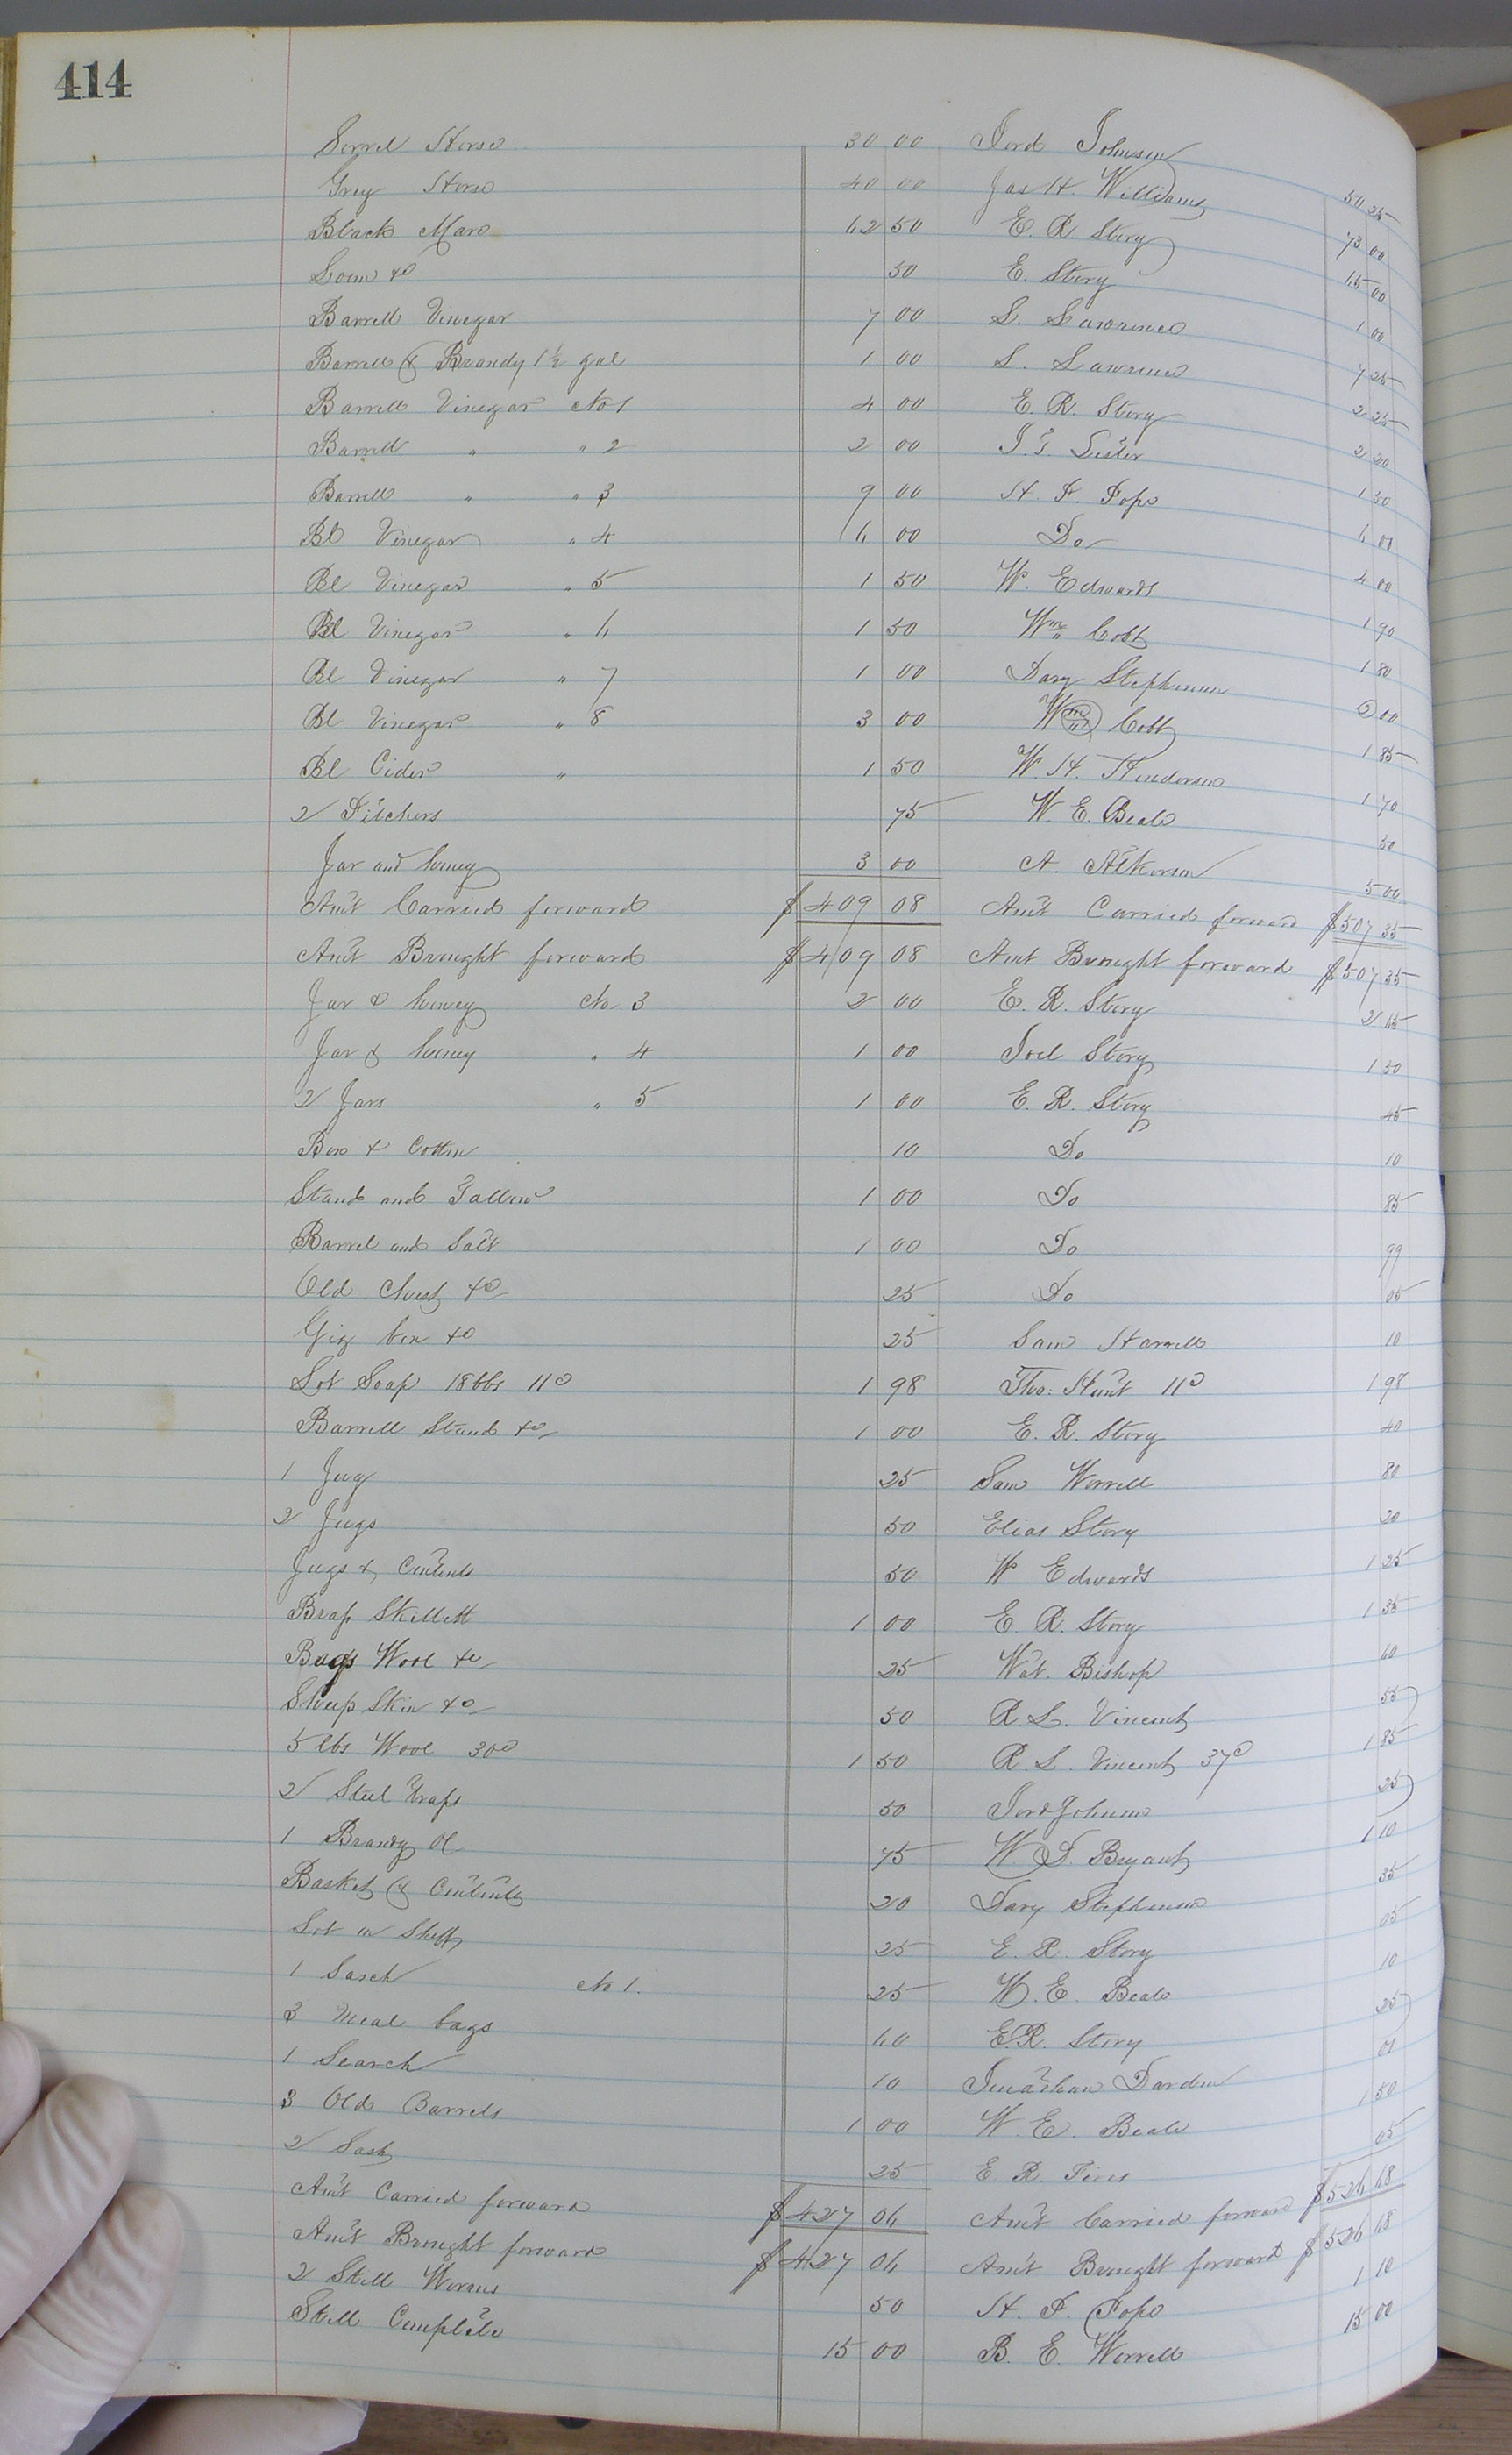 414
Sorrel Horse 30 00 Jord Johnson 50 25
Grey Horse 40 00 Jas H. Williams 73 00
Black Mare 62 50 E. R. Story 65 00
Loom &c 50 E. Story 1 00
Barrell Vinegar 7 00 S. Lawrence 7 25
Barrell & Brandy 1½ gal 1 00 S. Lawrence 2 25
Barrell Vinegar No 1 4 00 E. R. Story 2 20
Barrell " " 2 2 00 J. T. Lister 1 50
Barrell " " 3 9 00 H. F. Pope 6 00
Bl Vinegar " 4 6 00 Do 4 00
Bl Vinegar " 5 1 50 W. Edwards 1 90
Bl Vinegar " 6 1 50 Wm Cobb 1 80
Bl Vinegar " 7 1 00 Davy Stephenson 2 00
Bl Vinegar " 8 3 00 Wm Cobb 1 85
Bl Cider " 1 50 W. H. Henderson 1 70
2 Pitchers 75 W. E. Beale 50
Jar and honey 3 00 A. Atkerson 5 00
Am't Carried forward $409 08 Am't Carried forward $507 35
Am't Brought forward $409 08 Amt Brought forward $507 35
Jar & honey No 3 2 00 E. R. Story 2 65
Jar & honey " 4 1 00 Joel Story 1 50
2 Jars " 5 1 00 E. R. Story 45
Box & Cotton 10 Do 10
Stand and Tallow 1 00 Do 85
Barrel and Salt 1 00 Do 99
Old Chest &c 25 Do 05
Gig box &c 25 Sam Harrell 10
Lot Soap 18 lbs 11c 1 98 Tho: Hunt 11c 1 98
Barrell Stand &c 1 00 E. R. Story 40
1 Jug 25 Sam Worrell 80
2 Jugs 50 Elias Story 20
Jugs & Contents 50 W Edwards 1 25
Brass Skillett 1 00 E. R. Story 1 35
Bags Wool &c 25 Wat. Bishop 60
Sheep Skin &c 50 R. L. Vincent 55
5 lbs Wool 30c 1 50 R. L. Vincent 37c 1 85
2 Steel traps 50 Jord Johnson 25
1 Brandy Bl 75 W. D. Bryant 1 10
Basket & Contents 20 Davy Stephenson 35
Lot on Shelf 25 E. R. Story 05
1 Sasch No 1. 25 W. E. Beale 10
3 Meal bags 60 E. R. Story 25
1 Search 10 Jonathan Darden 01
3 Old Barrels 1 00 W. E. Beale 1 50
2 Sash 25 E. R. 05
Am't Carried forward $427 06 Am't Carried forward $526 68
Am't Brought forward $427 06 Am't Brought forward $526 68
2 Still Worms 50 H. F. Pope 1 10
Still Complete 15 00 B. E. Worrell 15 00